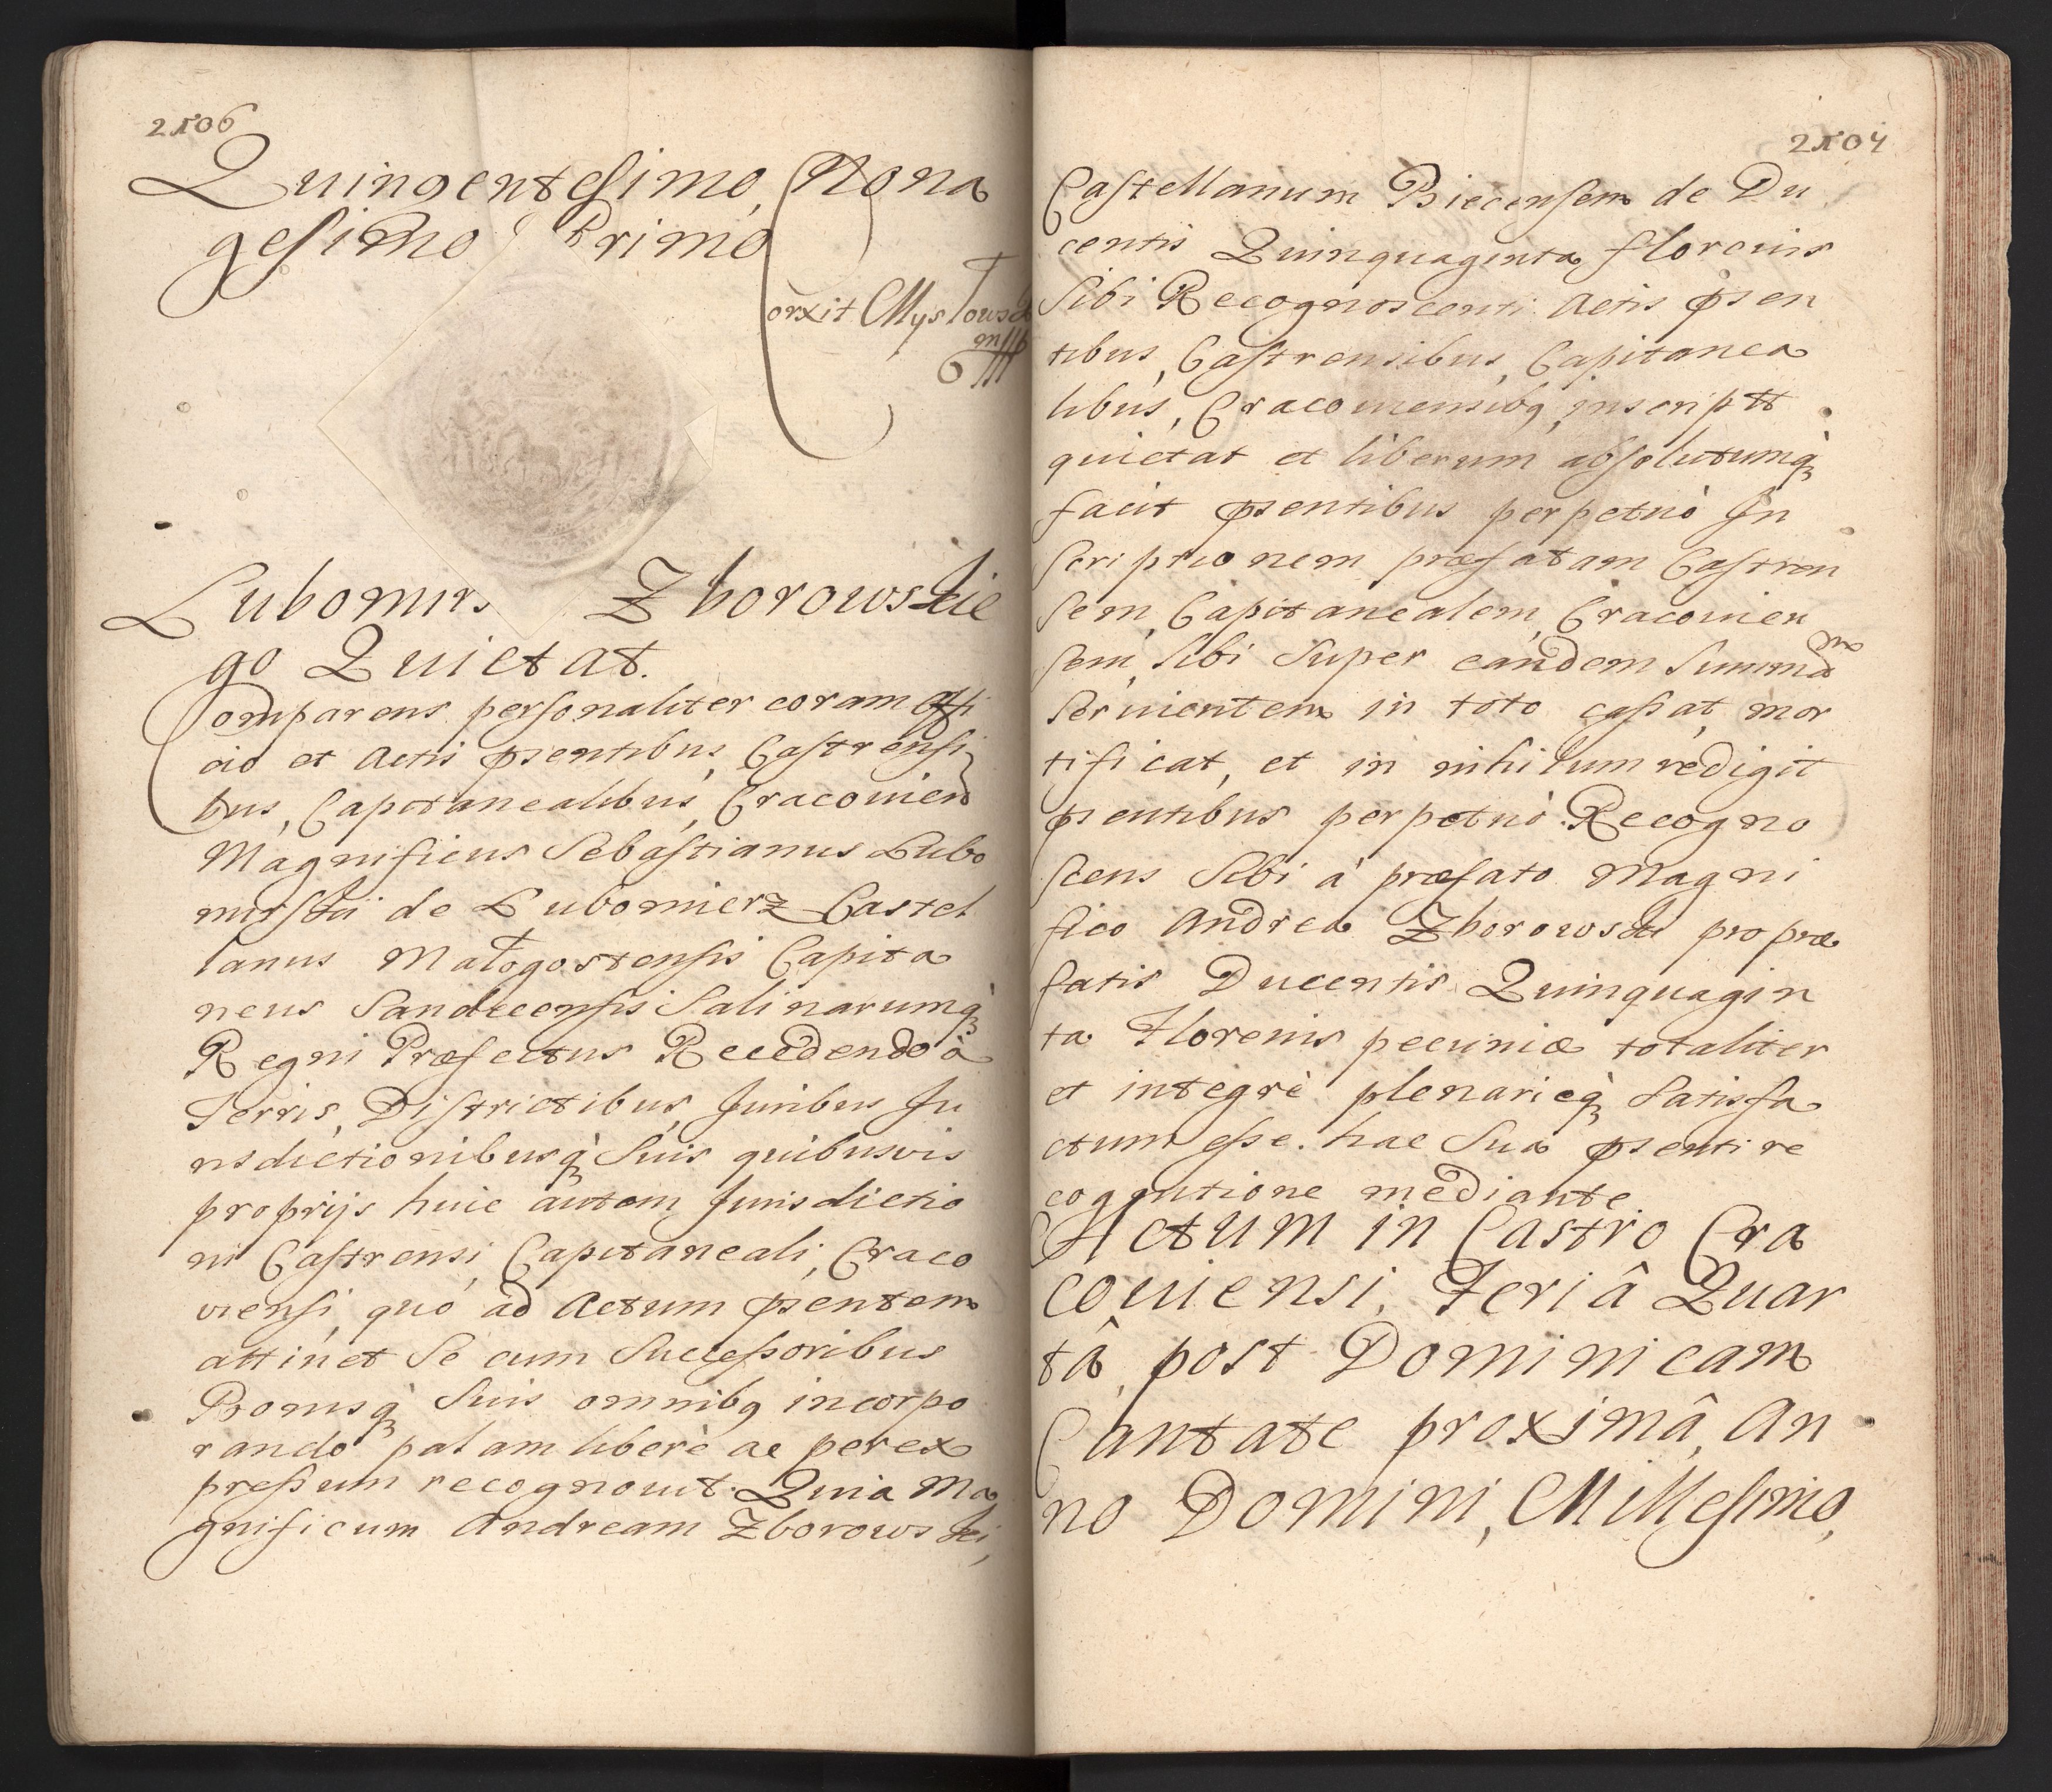 2506
Quingentesimo, Nona
gesimo Primo
Corxit Mysłowski
mpp
Lubomirs Zborowskie
go Quietat.
Comparens personaliter coram Offi
cio et Actis pntibus, Castrensi
bus, Capitanealibus, Cracovien
Magnificus Sebastianus Lubo
mirskii de Lubomierz Castel
lanus Małogostensis Capita
neus Sandecensis Salinarumq̀
Regni Præfectus Recedendo à
Terris, Districtibus, Juribus Ju
risdictionibusq̀ Suis quibusvis
proprijs huic autem Jurisdictio
ni Castrensi, Capitaneali, Craco
viensi, quó ad Actum psentem
attinet Se cum Successoribus
Bonisq̀ Suis omnibq incorpo
rando palam liberè ac per ex
pressum recognouit. Quia Ma
gnificum Andream Zborowski,
2507
Castellanum Biecensem de Du
centis Quinquaginta florenis
Sibi Recognoscenti Actis psen
tibus, Castrensibus, Capitanea
libus, Cracouiensibq, inscriptt
quietat et liberum absolutumq̀
facit psentibus perpetuò In
scriptionem præfatam Castren
sem, Capitanealem, Cracouien
sem, Sibi Super eandem Summam
Seruientem in toto cassat, mor
tificat, et in nihilum redigit
psentibus perpetuò. Recogno
scens Sibi à præfato Magni
fico Andrea Zborowski pro præ
fatis Ducentis Quinquagin
ta Florenis pecuniæ totaliter
et integrè plenarieq̀ Satisfa
ctum esse. hac Sua psenti re
cognitione mediante.
Actum in Castro Cra
couiensi, Feriâ Quar
tâ, post Dominicam
Cantate proximâ, An
no Domini, Millesimo,